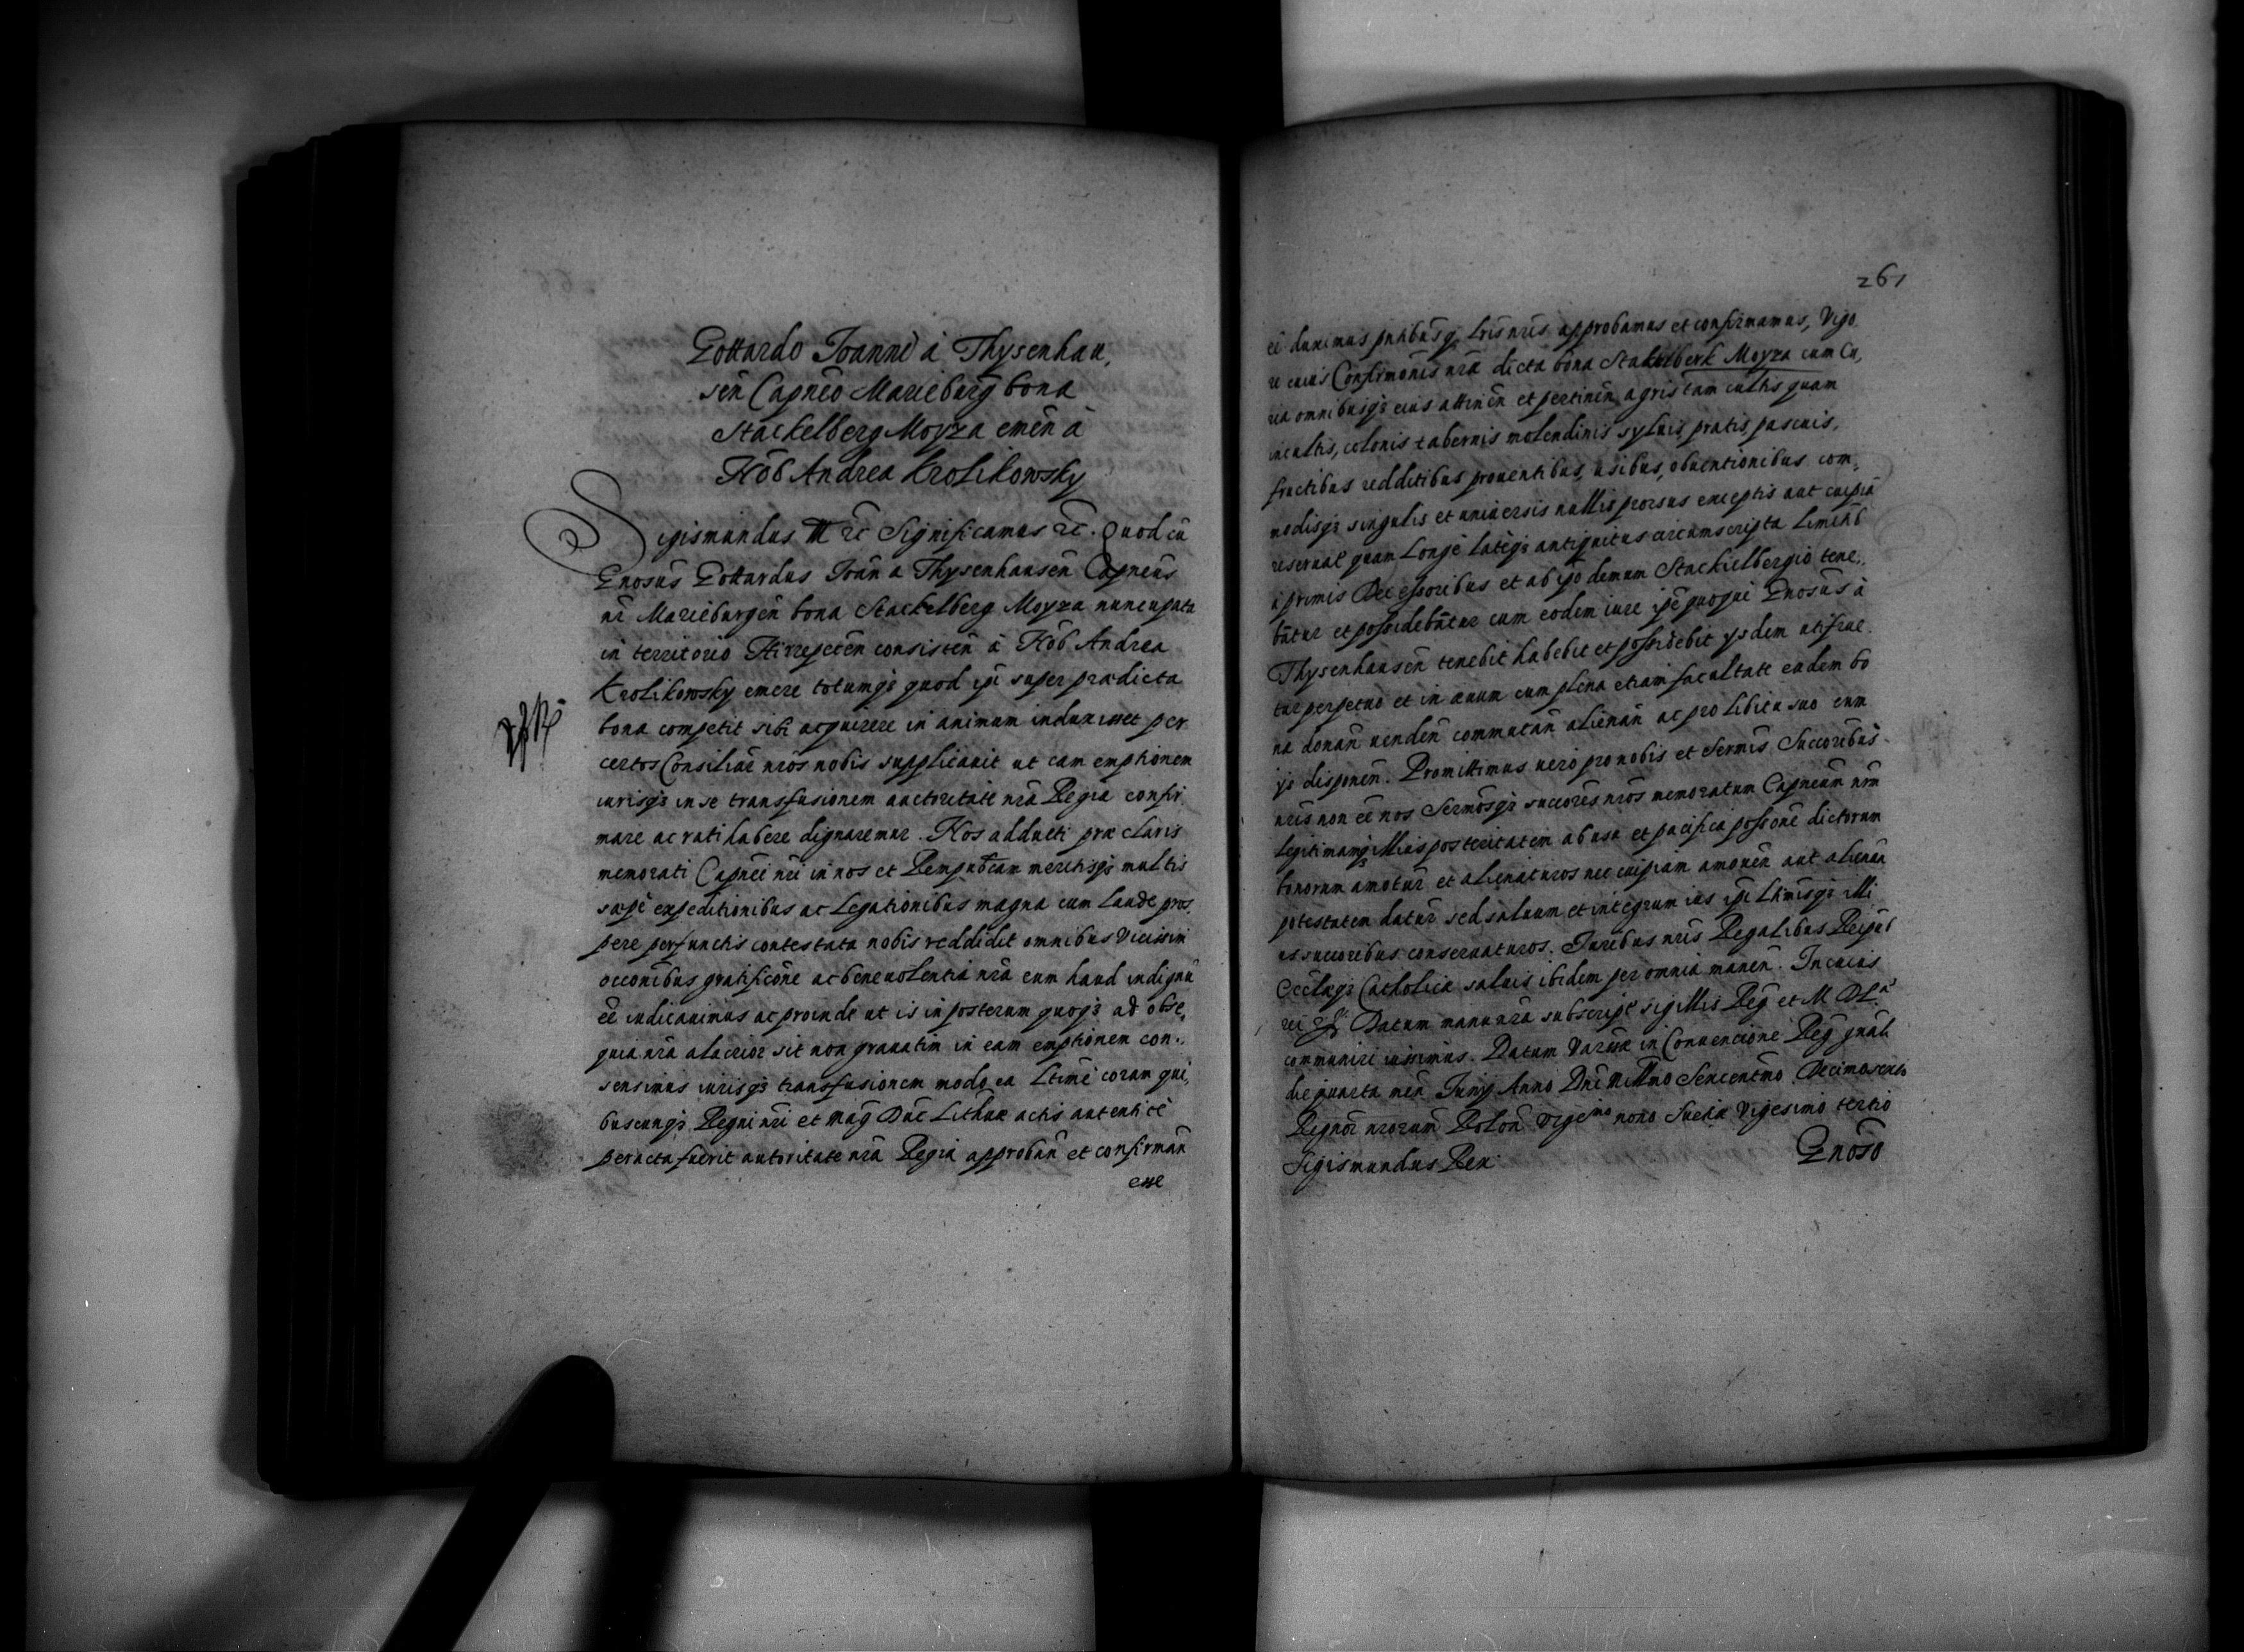 Gottardo Joanni à Thysenhau,
sen Capneo Marieburg bona
Stackelberg Moyza emen à
Nob Andrea Krolikowsky
Sigismundus III etc Significamus etc. Quod cu
Gnosus Gottardus Joan a Thysenhausen Capneus
nr Marieburgen bona Stackelberg Moyza nuncupata
in territorio Kirrepecen consisten à Nob Andrea
Krolikowsky emere totumqz quod ipi super prædicta
bona competit sibi acquirere in animum induxisset per
certos Consiliar nros nobis supplicauit ut eam emptionem
iurisqz in se transfusionem auctoritate nra Regia confir
mare ac rati habere dignaremur. Nos adducti præclaris
memorati Capnei nri in nos et Rempubcam meritisqz multis
sæpe expeditionibus ac Legationibus magna cum laude pros,
pere perfunctis contestata nobis reddidit omnibus Vicissim
occonibus gratificone ac beneuolentia nra eum haud indignu
ee iudicauimus ac proinde ut is in posterum quoqz ad obse,
quia nra alacrior sit non grauatim in eam emptionem con,
sensimus iurisqz transfusionem modo ea Ltime coram qui,
buscunqz Regni nri et Mag Duc Lithuæ actis autentice
peracta fuerit autoritate nra Regia approban et confirman
esse
261
ee duximus pntibusqz Lris nris approbamus et confirmamus, Vigo
re cuius Confirmonis nræ dicta bona Stakelberk Moyza cum Cu,
ria omnibusqz eius attinen et pertinen agris tam cultis quam
incultis, colonis tabernis molendinis syluis pratis pascuis,
fructibus redditibus prouentibus, usibus, obuentionibus com,
modisqz singulis et uniuersis nullis prorsus exceptis aut cuipia
reseruat quam Longe Lateqz antiquitus circumscripta Limitib
à primis Decessoribus et ab ipo demum Stackielbergio tene,
batur et possidebatur cum eodem iure ipe quoque Gnosus à
Thysenhausen tenebit habebit et possidebit ysdem utifrue
tur perpetuo et in æuum cum plena etiam facultate eadem bo
na donan uenden commutan alienan ac pro libitu suo cum
ys disponen. Promittimus uero pro nobis et Sermis Succoribus
nris non ee nos Sermosqz succores nros memoratum Capneum nrm
Legitimamqz illius posteritatem ab usu et pacifica possone dictorum
bonorum amotur et alienaturos nec cuipiam amouen aut alienan
potestatem datur sed saluum et integrum ius ipi Ltimisqz illi
us succoribus conseruaturos. Juribus nris Regalibus Reipub
Ecclæqz Catholicæ saluis ibidem per omnia manen. In cuius
rei Datum manu nra subscript sigillis Reg et M D L
communiri iussimus. Datum Varsæ in Conuencione Reg gnali
die quarta men Junij Anno Dni Millmo Sexcentmo Decimosexto
Regnor nrorum Polon Vigemo nono Sueciæ Vigesimo tertio
Sigismundus Rex
Gnoso